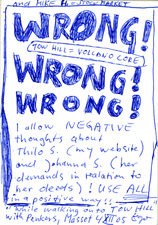 and MIKE
WRONG!
TOW HILL = VOLCANO CORE
WRONG!
WRONG!
I allow NEGATIVE
thoughts about
Thilo S. (my website)
and Johanna S. (her
demands in relation to
her deeds)! USE ALL
in a positive way!!
walking onto TOW HILL
with Penkers, Masset